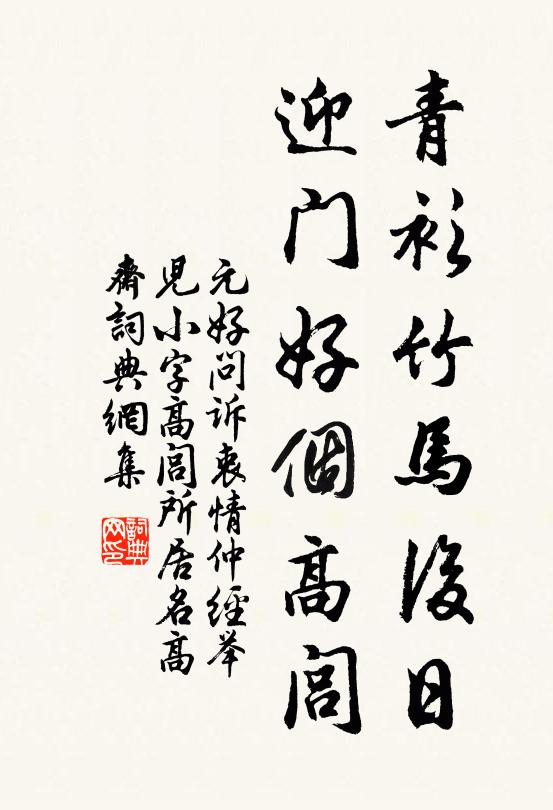 青衫竹馬後日
迎門好個高閭
元好問訴衷情仲經举
兒小字高閭所居名高
齋詞典網集
詞典网印